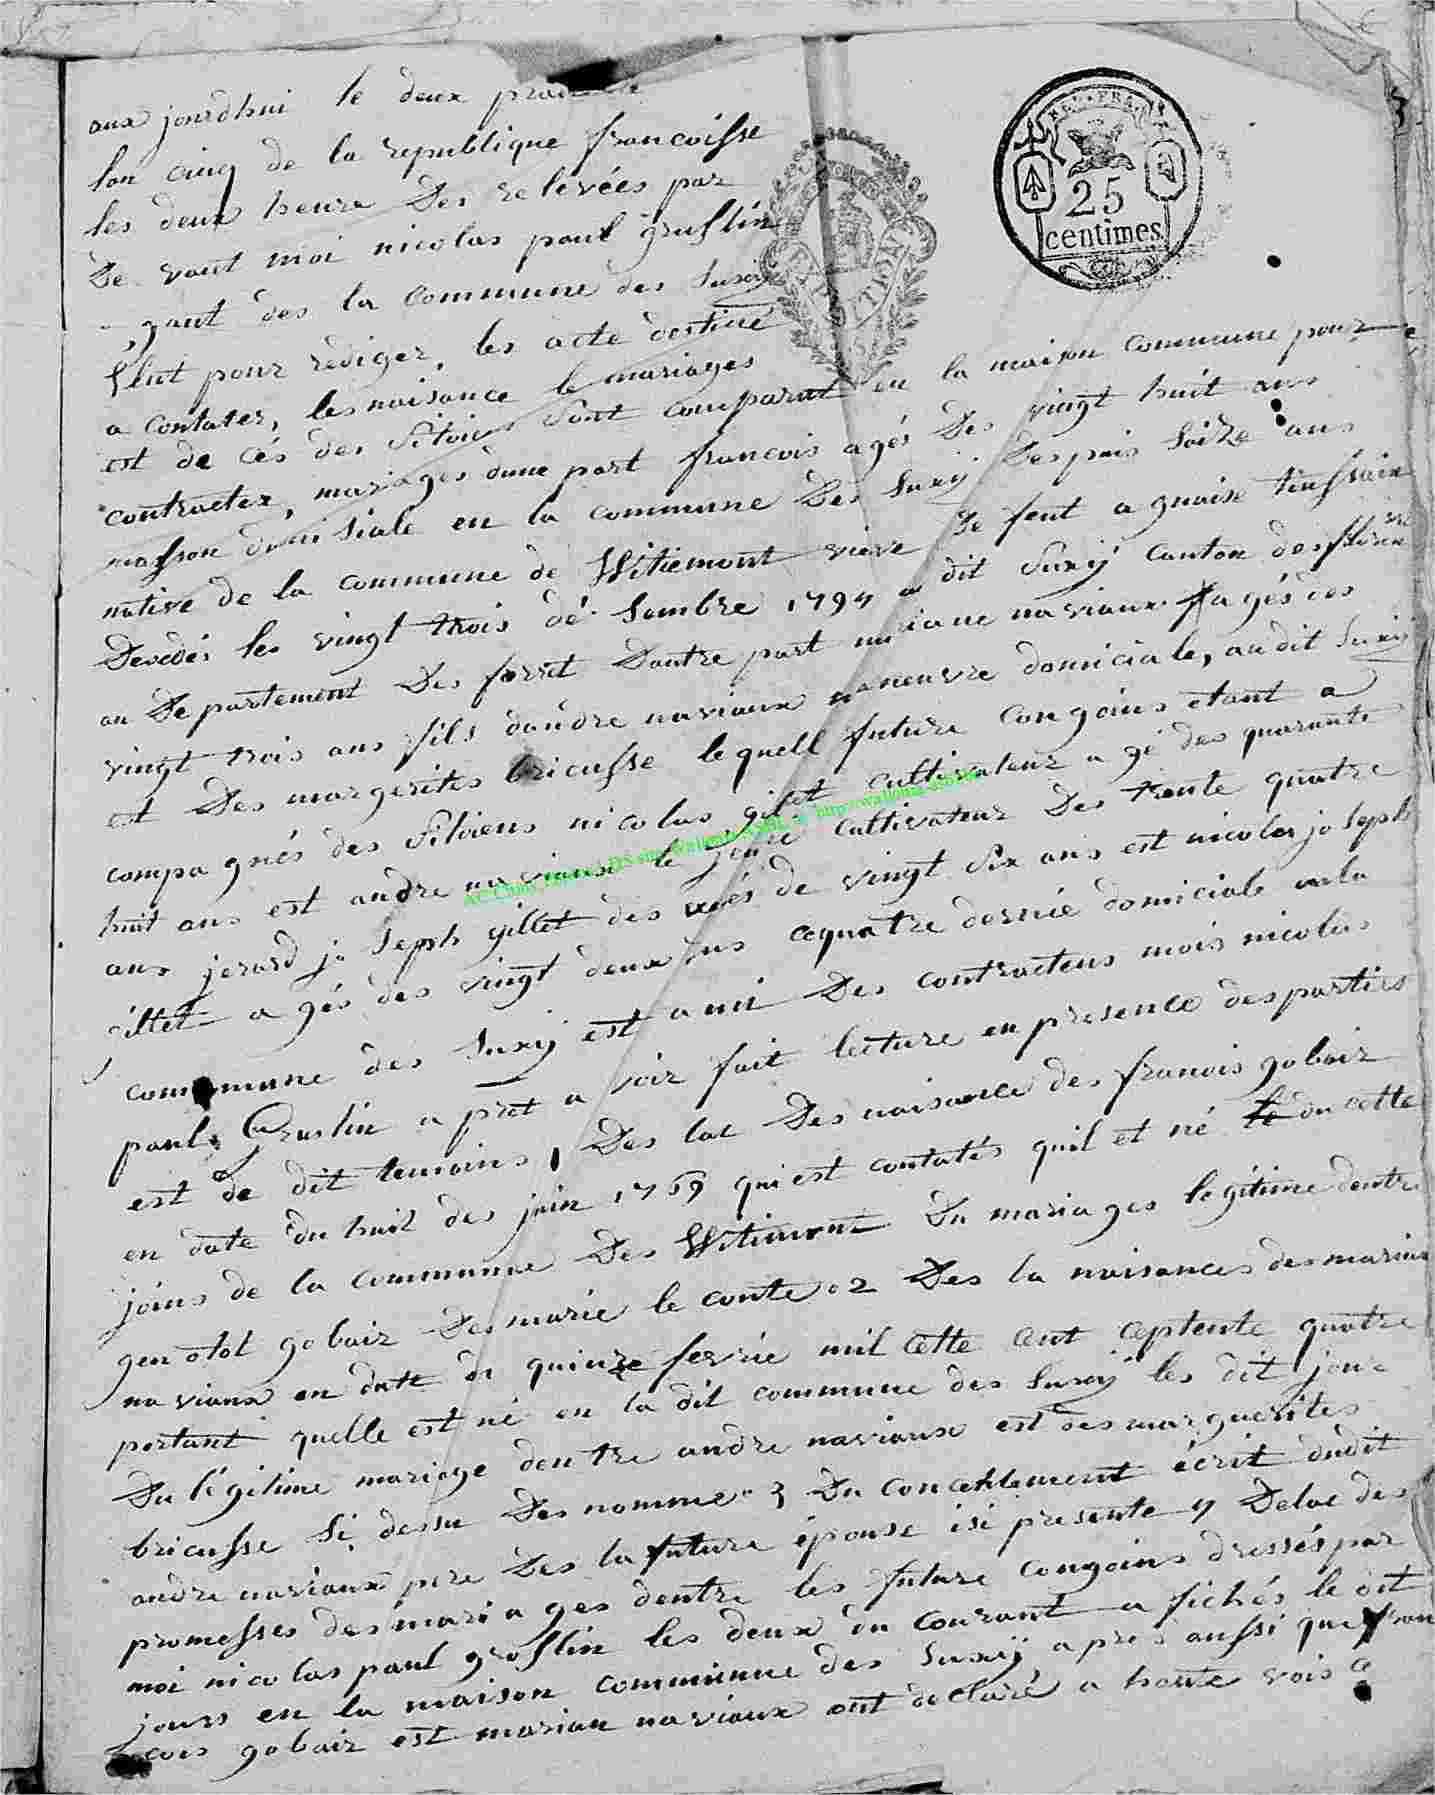 aux jourdhui le deux
lan cinq de la republique francoisse
les deux heure des relevées par
De vant moi nicolas paul gruslin
gant des la commune des Suxy
Slut pour rediger, les acte destine
a contater, les naisance le mariages
est de cés des Sitoiens Sont comparut en la maison commune pour
contracter, mariages dune part francois agés Des vingt huit ans
masson domisiale en la commune Des Suxy Des puis Saize ans
native de la commune de Witiemont
Desedés les vingt trois dé Sembre 1794 dit Suxy canton des
au De partement Des forret Dautre part mariane naviaux agés des
vingt trois ans fils dandre naviaux maneuvre domiciale, au dit Suxy
est Des margerites bricusse lequell future congoins etant a
compa gnés des Sitoiens nicolas gilet cultivateur a gé des quarante
huit ans est andre naviaux le jeune cultivateur Des trente quatre
ans jerard jo Seph gillet des agés de vingt Six ans est nicolas jo Seph
illet a gés des vingt deux ans cequatre dernie domiciale en la
commune des Suxy est ami Des contractens mois nicolas
paul Gruslin a prèt a voir fait lecture en presence des parties
est de dit temoins, Des lac Des naisance des franois gobair
en date du huit des juin 1769 qui est contatés quil et né le du cette
joins de la commune Des Witimont Du mariages legitime dentre
gen otot gobair Des marie le conte 2 Des la naisances des marian
na viaux en date du quinze fevrie mil cette cent ceptente quatre
portant quelle est né en la dit commune des Suxy les dit jour
Du légitime mariage dentre andre naviaux est des marguerites
bricusse Si dessu Des nomme 3 Du concentement écrit dudit
andre naviaux pere Des la future épouse isi presente 4 Delac des
promesses des mari a ges dentre les future congoins dressés par
moi nicolas paul gruslin les deux du courant a fichés le dit
jours en la maison commune des Suxy apres aussi que fran
cois gobair est marian naviaux ont declaré a haute vois
REP. FRA.
25
centimes